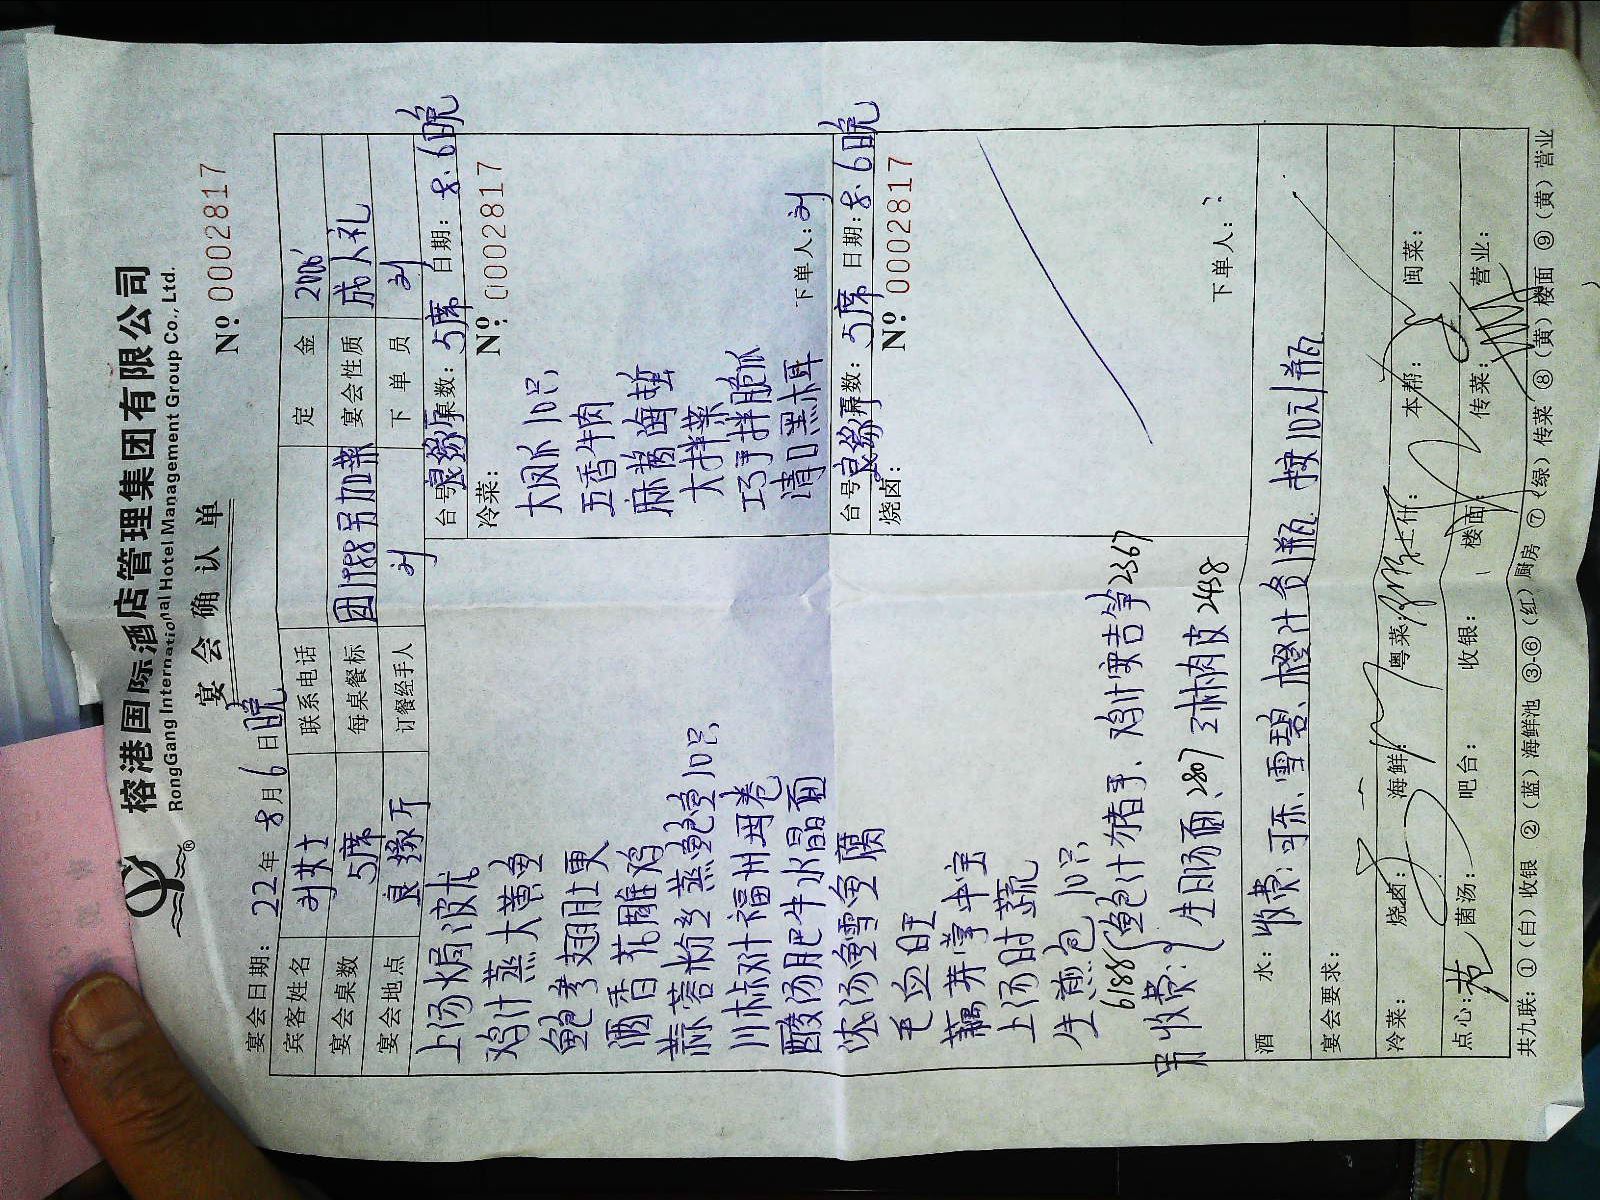 榕港国际酒店管理集团有限公司
RongGang International Hotel Management Group Co., Ltd.
®
宴会确认单
宴会日期: 22年 8月 6日晚 Nº: 0002817
宾客姓名 刘女士 联系电话 定金 2000
宴会桌数 5席 每桌餐标 团1788另加菜 宴会性质 成人礼
宴会地点 良缘厅 订餐经手人 刘 下单员 刘
上汤焗波龙
鸡汁蒸大黄鱼
鲍参翅肚更
酒香花雕鸡
蒜蓉粉丝蒸鲍鱼10只
川椒对汁福州 卷
酸汤肥牛水晶面
浓汤鳕鱼腐
毛血旺
藕荠掌中宝
上汤时蔬
生煎包 10只
另收费: 6188 鲍汁扣猪手、鸡汁 吉等2367
生 肠面、2807 肉皮 2438
台号: 良缘厅 桌数: 5席 日期: 8.6晚
冷菜: Nº: 0002817
大凤爪 10只
五香牛肉
麻酱海蜇
大拌菜
巧手拌脆瓜
清口黑木耳
下单人: 刘
台号: 良缘厅 桌数: 5席 日期: 8.6晚
烧卤: Nº: 0002817
下单人:
酒水: 收费: 可乐、雪碧、橙汁各1瓶 按10元/瓶
宴会要求:
冷菜: 烧卤: 海鲜: 粤菜: 上什: 本帮: 闽菜:
点心: 菌汤: 吧台: 收银: 楼面: 传菜: 营业:
共九联: ①(白)收银 ②(蓝)海鲜池 ③-⑥(红)厨房 ⑦(绿)传菜 ⑧(黄)楼面 ⑨(黄)营业